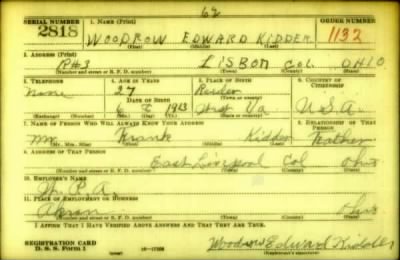 62
SERIAL NUMBER 1. NAME (Print) ORDER NUMBER
2818 WOODROW EDWARD KIDDER 1132
(First) (Middle) (Last)
2. ADDRESS (Print)
R#3 LISBON COL. OHIO
(Number and street or R. F. D. number) (Town) (County) (State)
3. TELEPHONE 4. AGE IN YEARS 5. PLACE OF BIRTH 6. COUNTRY OF CITIZENSHIP
None 27
DATE OF BIRTH (Town or county)
6 1913 West Va U.S.A.
(Exchange) (Number) (Mo.) (Day) (Yr.) (State or country)
7. NAME OF PERSON WHO WILL ALWAYS KNOW YOUR ADDRESS 8. RELATIONSHIP OF THAT PERSON
Mr. Frank Kidder Father
(Mr., Mrs., Miss) (First) (Middle) (Last)
9. ADDRESS OF THAT PERSON
East Liverpool Col Ohio
(Number and street or R. F. D. number) (Town) (County) (State)
10. EMPLOYER'S NAME
W. P. A.
11. PLACE OF EMPLOYMENT OR BUSINESS
Akron Ohio
(Number and street or R. F. D. number) (Town) (County) (State)
I AFFIRM THAT I HAVE VERIFIED ABOVE ANSWERS AND THAT THEY ARE TRUE.
REGISTRATION CARD
D. S. S. Form 1 Woodrow Edward Kidder
(Registrant's signature)